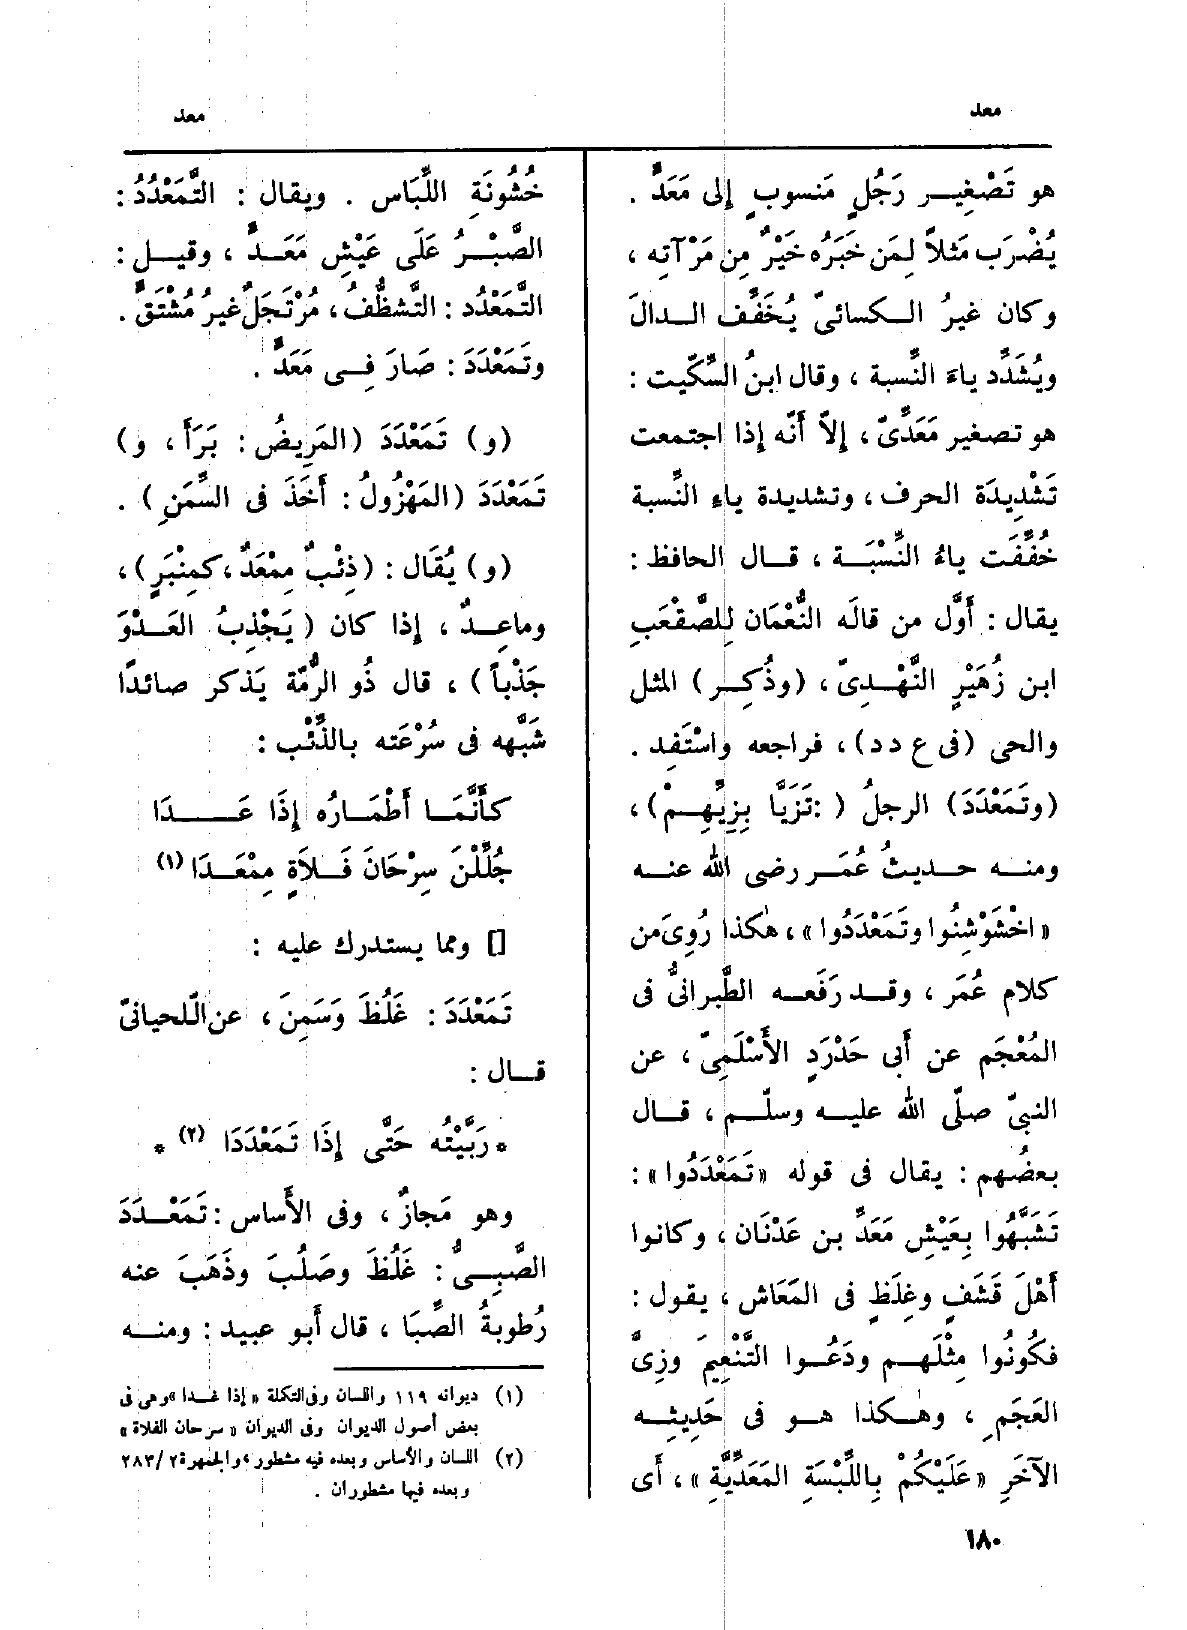 معد
معد
هو تَصْغِيــر رَجُلٍ مَنسوبٍ إِلى مَعَدٍّ .
يُضْرَب مَثلاً لِمَن خَبَرُه خَيْرٌ مِن مَرْآتِه ،
وكان غيرُ الـكسائىّ يُخَفِّف الــدالَ
ويُشَدِّد ياءَ النِّسبة ، وقال ابنُ السِّكِّيت :
هو تصغير مَعَدِّىّ ، إِلاّ أَنّه إِذا اجتمعت
تَشْدِيدَة الحرف ، وتشديدة ياءِ النِّسبة
خُفِّفَت ياءُ النِّسْبَــة ، قــال الحافظ :
يقال : أَوَّل من قالَه النُّعْمَان لِلصَّقعَبِ
ابن زُهَيْرٍ النَّهْـدِىّ ، (وذُكِــر) المثل
والحى (فى ع د د) ، فراجعه واسْتَفِد .
(وتَمَعْدَدَ) الرجلُ ( :تَزَيَّا بِزِيِّهِــمْ) ،
ومنــه حــديثُ عُمَر رضى الله عنــه
« اخْشَوْشِنُوا وتَمَعْدَدُوا » ، هٰكذا رُوِىَ من
كلام عُمَر ، وقــد رَفَعــه الطَّبرانىُّ فى
المُعْجَم عن أَبى حَدْرَدٍ الأَسْلَمِىّ ، عن
النبىّ صلَّى الله عليــه وسلَّــم ، قــال
بعضُهم : يقال فى قوله « تَمَعْدَدُوا » :
تَشَبَّهُوا بِعَيْشِ مَعَدِّ بن عَدْنَان ، وكانوا
أَهْلَ قَشَفٍ وغِلَظٍ فى المَعَاش ، يقول :
فكُونُوا مِثْلَهــم ودَعُــوا التَّنْعِيمَ وزِىَّ
العَجَمِ ، وهٰـكذا هــو فى حَدِيثِــه
الآخَرِ « عَلَيْكُمْ بِاللِّبْسَةِ المَعَدِّيَّةِ » ، أَى
خُشُونَةِ اللِّبَاس . ويقال : التَّمَعْدُدُ :
الصَّبْــرُ عَلَى عَيْشِ مَعَــدٍّ ، وقيــل :
التَّمَعْدُد : التَّشظُّفُ ، مُرْتَجَلٌ غيرُ مُشْتَقٍّ .
وتَمَعْدَدَ : صَارَ فِــى مَعَدٍّ .
(و) تَمَعْدَدَ (المَرِيضُ : بَرَأَ ، و)
تَمَعْدَدَ (المَهْزُولُ : أَخَذَ فى السِّمَنِ) .
(و) يُقَال : (ذِئْبٌ مِمْعَدٌ ، كمِنْبَرٍ) ،
وماعِــدٌ ، إِذا كان ( يَجْذِبُ العَــدْوَ
جَذْباً ) ، قال ذُو الرُّمّة يَذكر صائدًا
شَبَّهه فى سُرْعَته بالذِّئْب :
كَأَنَّمَــا أَطْمَارُه إِذَا عَــــدَا
جُلِّلْنَ سِرْحَانَ فَــلاَةٍ مِمْعَــدَا (١)
[] ومما يستدرك عليه :
تَمَعْدَدَ : غَلُظَ وَسَمِنَ ، عن اللِّحيانىّ
قــال :
* رَبَّيْتُه حَتَّى إِذَا تَمَعْدَدَا (٢) *
وهو مَجازٌ ، وفى الأَساس : تَمَعْــدَدَ
الصَّبِــىُّ : غَلُظَ وصَلُبَ وذَهَبَ عنه
رُطوبةُ الصِّبَا ، قال أَبو عبيد : ومنــه
(١) ديوانه ١١٩ واللسان وفى التكلة « إذا غدا » وهى فى
بعض أصول الديوان وفى الديوان « سرحان الفلاة »
(٢) اللسان والأساس وبعده فيه مشطور ، والجمهرة ٢ / ٢٨٣
وبعده فيها مشطوران .
١٨٠